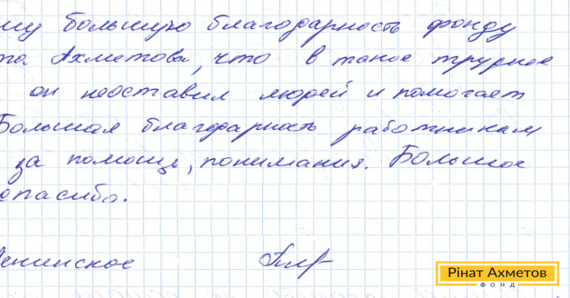 му большую благодарность фонду
та Ахметова, что в такое трудное
он неоставил людей и помогает
Большая благодарность работникам
за помощь, понимания. Большое
спасибо.
Ленинское
Рінат Ахметов
ФОНД